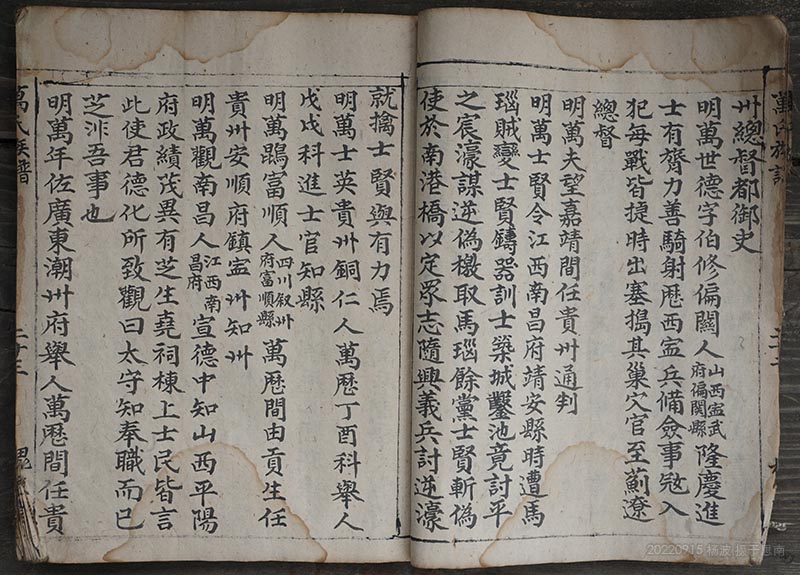 卅總督都御史
明萬世德字伯修偏關人山西寍武府偏関縣隆慶進
士有膂力善騎射歷西寍兵備僉事冦入
犯每戰皆捷時出塞搗其巢穴官至薊遼
總督
明萬夫望嘉靖間任貴州通判
明萬士賢令江西南昌府靖安縣時遭馬
瑙賊變士賢鑄器訓士築城鑿池竟討平
之宸濠謀逆偽檄取馬瑙餘黨士賢斬偽
使於南港橋以定眾志隨興義兵討逆濠
就擒士賢與有力焉
明萬士英貴州銅仁人萬歷丁酉科舉人
戊戌科進士官知縣
明萬鶚富順人四川叙州府富順縣萬歷間由貢生任
貴州安順府鎮寍州知州
明萬觀南昌人江西南昌府宣德中知山西平陽
府政績茂異有芝生堯祠棟上士民皆言
此使君德化所致觀曰太守知奉職而已
芝非吾事也
明萬年佐廣東潮州府舉人萬歷間任貴
萬氏族譜
二十三
20220915 杨波 摄于思南